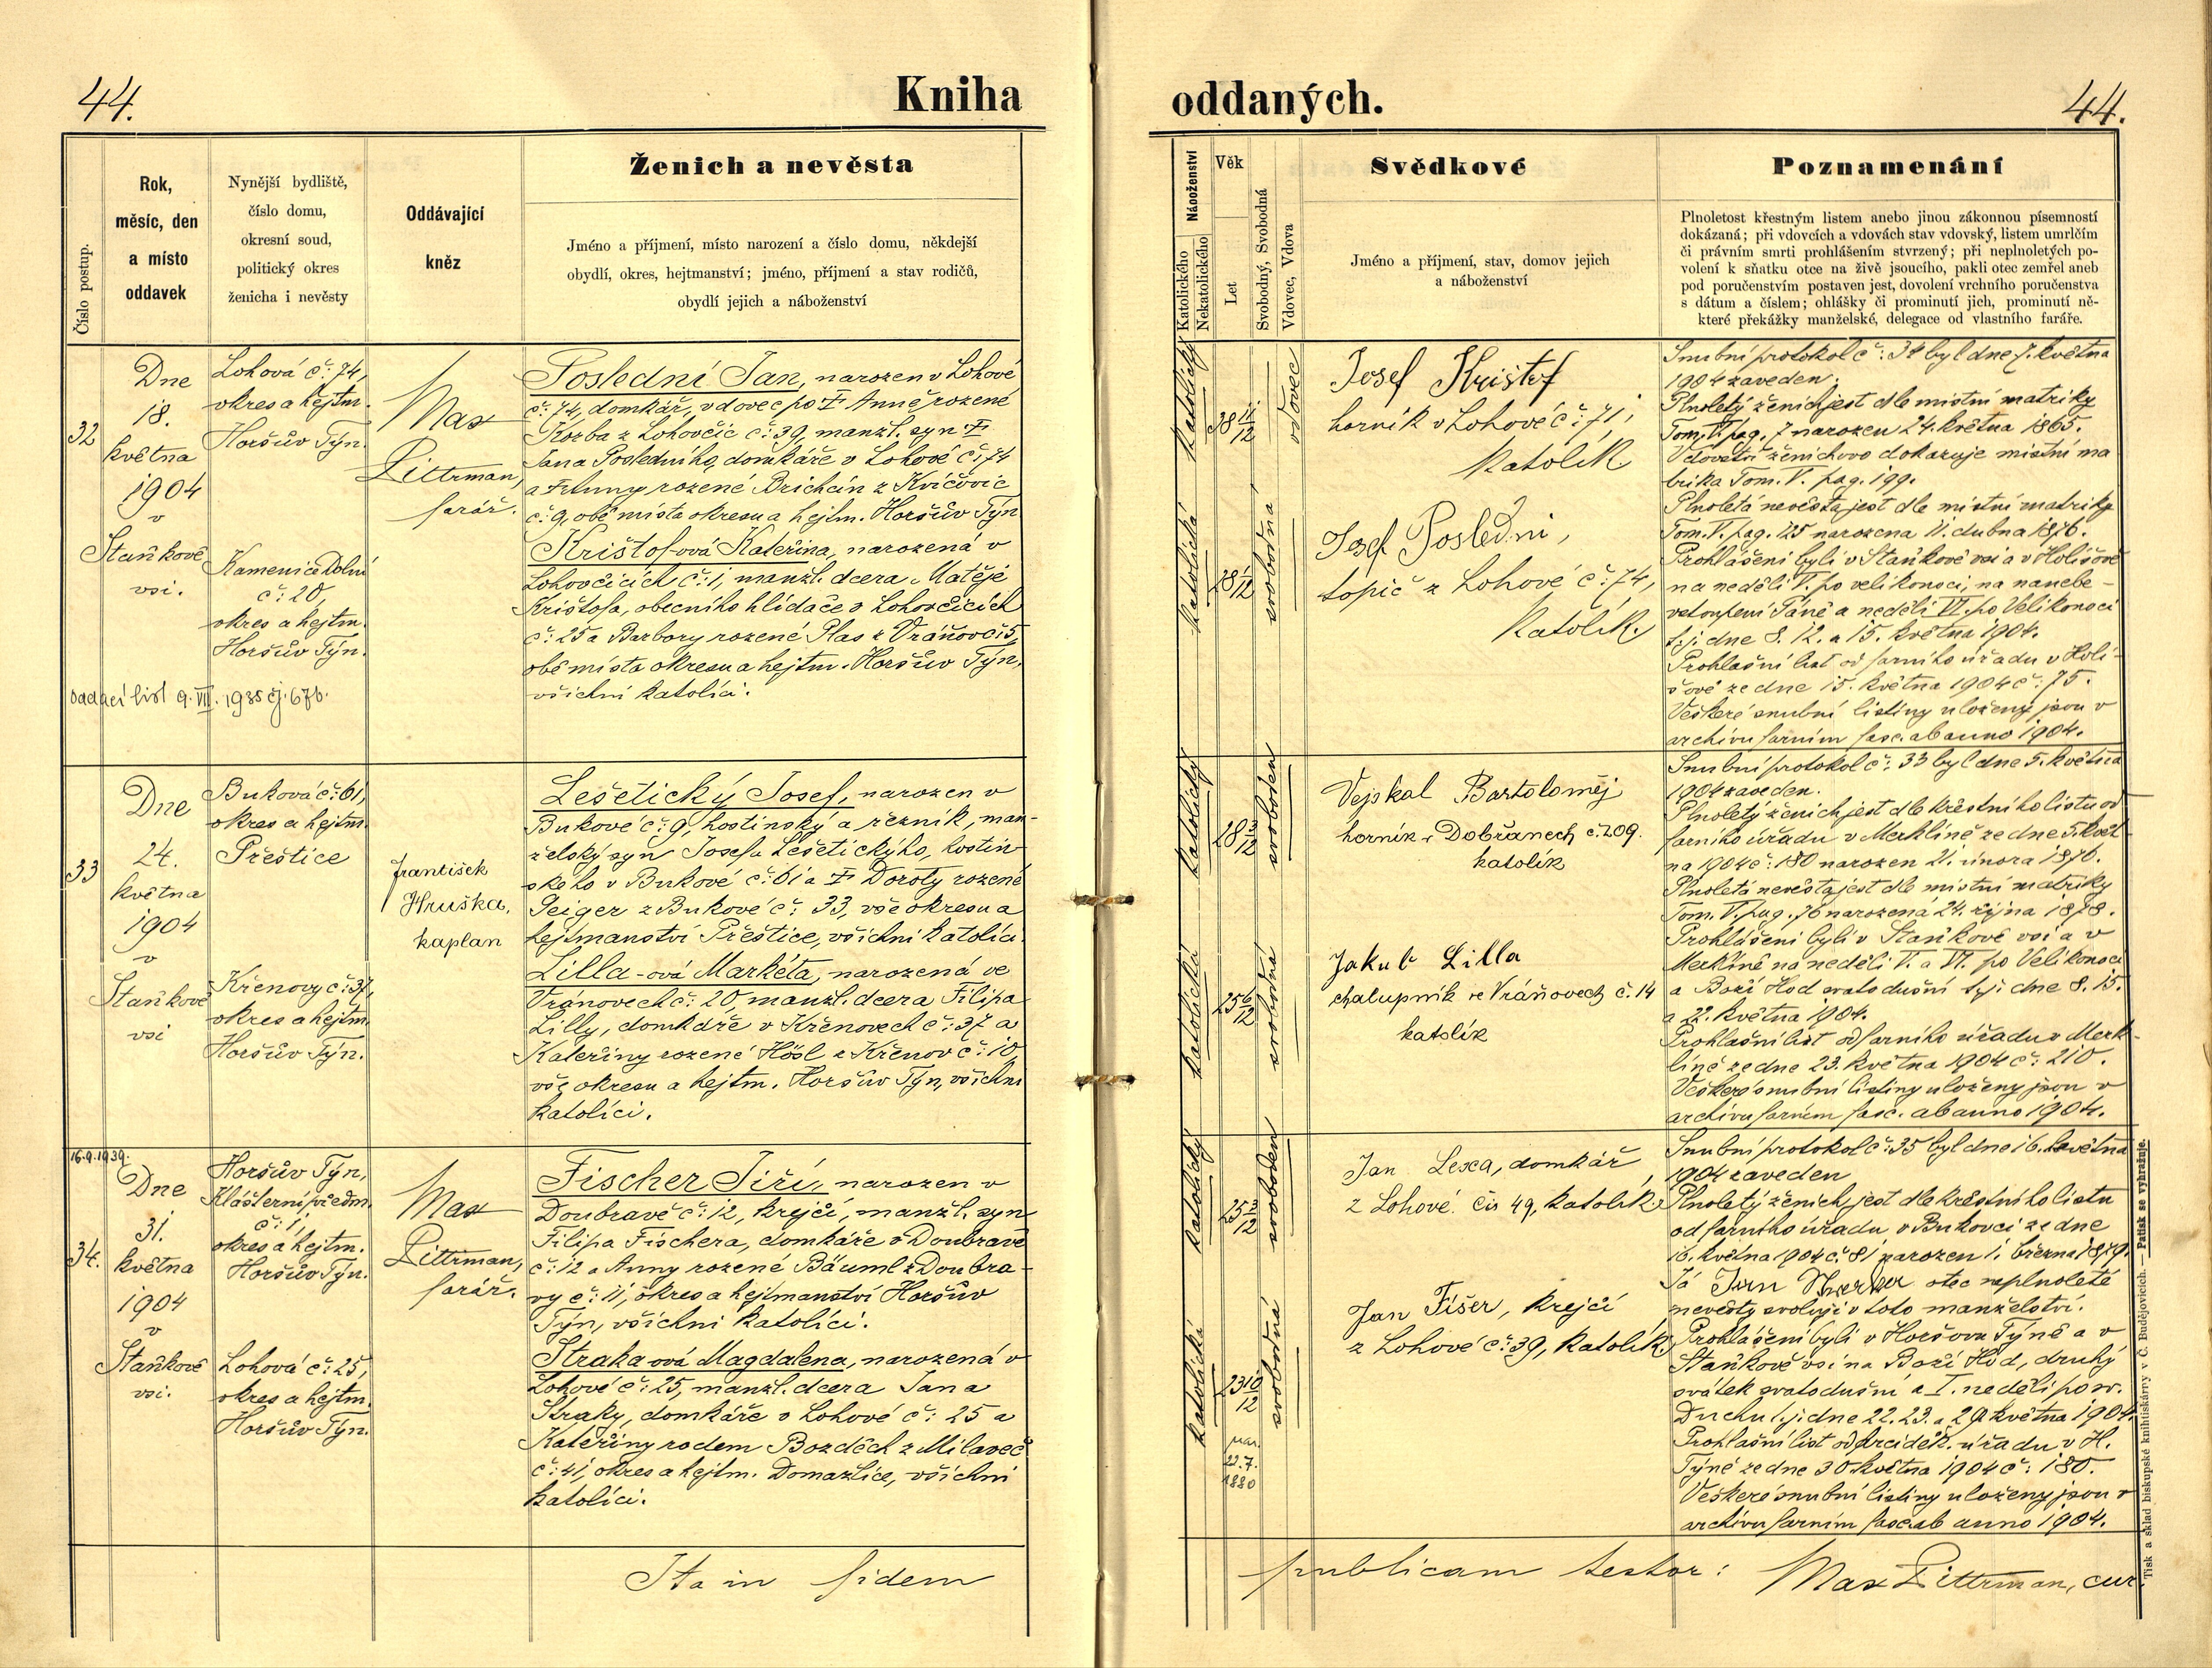 44.
Kniha
oddaných.
44.
Číslo postup.
Rok,
měsíc, den
a místo
oddavek
Nynější bydliště,
číslo domu,
okresní soud,
politický okres
ženicha i nevěsty
Oddávající
kněz
Ženich a nevěsta
Jméno a příjmení, místo narození a číslo domu, někdejší
obydlí, okres, hejtmanství; jméno, příjmení a stav rodičů,
obydlí jejich a náboženství
Náboženství
Katolického
Nekatolického
Věk
Let
Svobodný, Svobodná
Vdovec, Vdova
Svědkové
Jméno a příjmení, stav, domov jejich
a náboženství
Poznamenání
Plnoletost křestným listem anebo jinou zákonnou písemností
dokázaná; při vdovcích a vdovách stav vdovský, listem umrlčím
či právním smrti prohlášením stvrzený; při neplnoletých po-
volení k sňatku otce na živě jsoucího, pakli otec zemřel aneb
pod poručenstvím postaven jest, dovolení vrchního poručenstva
s dátum a číslem; ohlášky či prominutí jich, prominutí ně-
které překážky manželské, delegace od vlastního faráře.
32
Dne
18.
května
1904
v
Staňkově
vsi.
Lohová č: 74,
okres a hejtm.
Horšův Týn.
Kamenice Dolní
č: 20,
okres a hejtm.
Horšův Týn.
oddací list 9. VII. 1935 čj. 676.
Max
Littrman,
farář.
Poslední Jan, narozen v Lohové
č: 74, domkář, vdovec po † Anně rozené
Kozba z Lohovčic č: 39, manžl. syn †
Jana Posledního, domkáře v Lohové č: 74
a † Anny rozené Brichcín z Kvíčovic
č: 9, obě místa okresu a hejtm. Horšův Týn
Krištof-ová Kateřina, narozená v
Lohovčicích č: 1, manžl. dcera Matěje
Krištofa, obecního hlídače v Lohovčicích
č: 25 a Barbory rozené Plas z Vráňov č: 5,
obě místa okresu a hejtm. Horšův Týn,
všichni katolíci.
katolický
38 11/12
vdovec
katolická
28 1/12
svobodná
Josef Krištof
horník v Lohové č: 71,
katolík.
Josef Poslední,
topič z Lohové č: 74,
katolík.
Snubní protokol č: 32 byl dne 7. května
1904 zaveden.
Plnoletý ženich jest dle místní matriky
Tom. V. pag. 7 narozen 24. května 1865.
Vdovství ženichovo dokazuje místní ma
trika Tom. V. pag. 199.
Plnoletá nevěsta jest dle místní matriky
Tom. V. pag. 125 narozena 11. dubna 1876.
Prohlášeni byli v Staňkově vsi a v Holišově
na neděli V. po velikonoci, na nanebe-
vstoupení Páně a neděli VI. po Velikonoci
t. j. dne 8. 12. a 15. května 1904.
Prohlašní list od farního úřadu v Holi-
šově ze dne 15. května 1904 č: 75.
Veškeré snubní listiny uloženy jsou v
archivu farním fasc. ab anno 1904.
33
Dne
24.
května
1904
v
Staňkově
vsi
Buková č: 61,
okres a hejtm.
Přeštice
Křenovy č: 37,
okres a hejtm.
Horšův Týn.
František
Hruška,
kaplan
Lešetický Josef, narozen v
Bukové č: 9, hostinský a řezník, man-
želský syn Josefa Lešetického, hostin
ského v Bukové č: 61 a † Doroty rozené
Geiger z Bukové č: 33, vše okresu a
hejtmanství Přeštice, všichni katolíci.
Lilla-ová Markéta, narozená ve
Vránovech č: 20, manžl. dcera Filipa
Lilly, domkáře v Křenovech č: 37 a
Kateřiny rozené Hösl z Křenov č: 10,
vše okresu a hejtm. Horšův Týn, všichni
katolíci.
katolický
28 3/12
svoboden
katolická
25 6/12
svobodná
Vejskal Bartoloměj
horník v Dobřanech č. 209.
katolík
Jakub Lilla
chalupník ve Vráňovech č. 14
katolík
Snubní protokol č: 33 byl dne 5. května
1904 zaveden.
Plnoletý ženich jest dle křestního listu od
farního úřadu v Merklíně ze dne 5. květ
na 1904 č: 180 narozen 21. února 1876.
Plnoletá nevěsta jest dle místní matriky
Tom. V. pag. 76 narozená 24. října 1878.
Prohlášeni byli v Staňkově vsi a v
Merklíně na neděli V. a VI. po Velikonoci
a Boží Hod svatodušní t. j. dne 8. 15.
a 22. května 1904.
Prohlašní list od farního úřadu v Merk-
líně ze dne 23. května 1904 č: 210.
Veškeré snubní listiny uloženy jsou v
archivu farním fasc. ab anno 1904.
16.9.1939.
34.
Dne
31.
května
1904
v
Staňkově
vsi.
Horšův Týn,
Klášterní předm.
č: 1,
okres a hejtm.
Horšův Týn.
Lohová č: 25,
okres a hejtm.
Horšův Týn.
Max
Littrman,
farář.
Fischer Jiří, narozen v
Doubravě č: 12, krejčí, manžl. syn
Filipa Fischera, domkáře v Doubravě
č: 12 a Anny rozené Bäuml z Doubra-
vy č: 11, okres a hejtmanství Horšův
Týn, všichni katolíci.
Straka-ová Magdalena, narozená v
Lohové č: 25, manžl. dcera Jana
Straky, domkáře v Lohové č: 25 a
Kateřiny rodem Bozděch z Milaveč
č: 41, okres a hejtm. Domažlice, všichni
katolíci.
katolický
25 2/12
svoboden
katolická
23 10/12
svobodná
nar.
22.7.
1880
Jan Lexa, domkář,
z Lohové čís 49, katolík
Jan Fišer, krejčí
z Lohové č: 39, katolík.
Snubní protokol č: 35 byl dne 16. května
1904 zaveden
Plnoletý ženich jest dle křestního listu
od farního úřadu v Bukovci ze dne
16. května 1904 č: 81 narozen 1. března 1879.
Já Jan otec neplnoleté
nevěsty svoluji v toto manželství.
Prohlášeni byli v Horšovu Týně a v
Staňkově vsi na Boží Hod, druhý
svátek svatodušní a I. neděli po sv.
Duchu t. j. dne 22. 23. a 29. května 1904.
Prohlašní list od arciděk. úřadu v H.
Týně ze dne 30. května 1904 č: 180.
Veškeré snubní listiny uloženy jsou v
archivu farním fasc. ab anno 1904.
Ita in fidem
publicam testor: Max Littrman, cur.
Tisk a sklad biskupské knihtiskárny v Č. Budějovicích. — Patisk se vyhražuje.